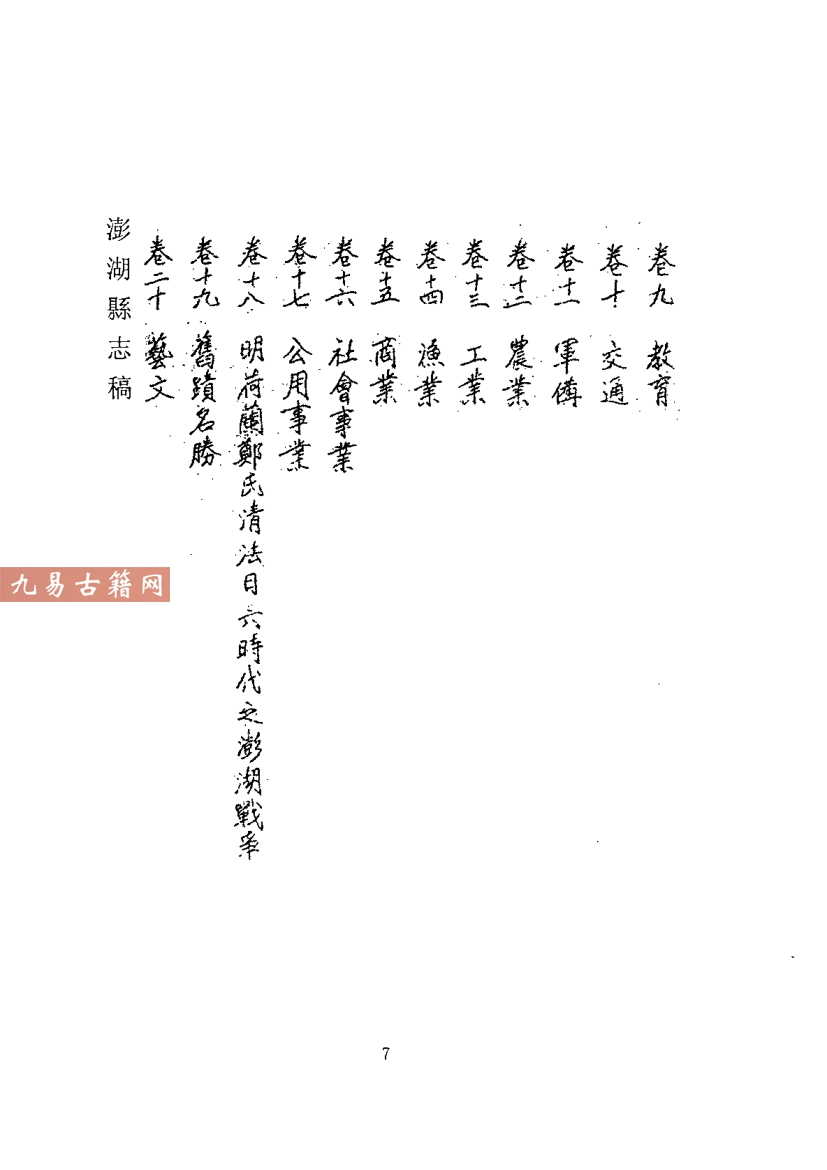 卷九　教育
卷十　交通
卷十一　軍備
卷十二　農業
卷十三　工業
卷十四　漁業
卷十五　商業
卷十六　社會事業
卷十七　公用事業
卷十八　明荷蘭鄭氏清法日六時代之澎湖戰爭
卷十九　舊蹟名勝
卷二十　藝文
澎湖縣志稿
九易古籍网
7